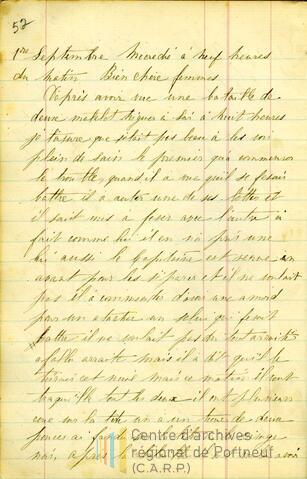 52
1re Septembre Mecredi à neuf heures
du matin Bien chère femmes
Dépris avoir vue une bataille de
deux matelot à sai à huit heures
je tasure que sétait pas beau à les voir
plein de sain le premier qui à commencer
le trouble quand il à vue quil se fesai
battre il à auter une de ses bottes et
il sait mis à feser avec lautre à
fait comme lui il en na pris une
lui aussi le Capitaine est venue en
avant pour les séparer et il ne voulait
pas il à commender davoir une amard
pour en atacher un selui qui fesait
battre il ne voulait pas
afallu arrette mais il a dit quil le
turais cet nuit mais ce matin il sont
traquille tout les deux il ont plusieurs
cous sur la tète un à un trous de deux
pouces
noi, apres
Centre d'archives
régional de Portneuf
(C.A.R.P.)